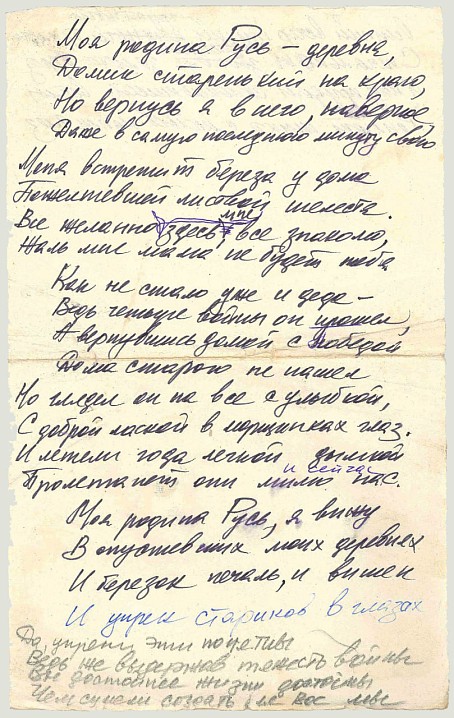 Моя родина Русь – деревня,
Домик старенький на краю,
Но вернусь я в него, наверное
Даже в самую последнюю минуту свою
Меня встретит береза у дома
Пожелтевшей листвой шелестя.
мне
Все желанно здесь, все знакомо,
Жаль мне мама не будет
Как не стало уже и деда –
Ведь четыре войны он прошел,
А вернувшись домой с Победой
Дома старого не нашел
Но глядел он на все с улыбкой,
С доброй лаской в морщинках глаз.
И летели года легкой дымкой
и сейчас
Пролетают они мимо нас.
Моя родина Русь, я вижу
В опустевших моих деревнях
И березок печаль, и вишен
И упрек стариков в глазах
Да, упреки эти
Ведь же выдержав тяжесть войны
Вы достойнее жизни достойны
Чем сумели создать мы